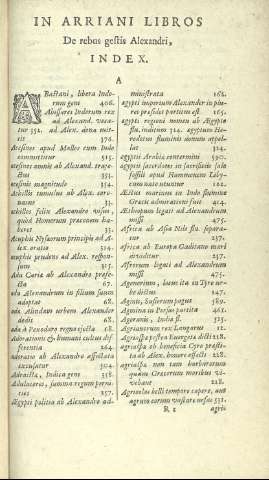 IN ARRIANI LIBROS
De rebus gestis Alexandri,
INDEX.
A
ABastani, libera Indorum
gens 406.
Abissares Indorum rex
ad Alexand. vocatur
352. ad Alex. dona mittit
376.
Acesines apud Mallos cum Indo
committitur 315.
Acesines amnis ab Alexand. trajectus
353.
Acesinis magnitudo 354.
Achillis tumulus ab Alex. coronatus
33.
Achilles felix Alexandro visus,
quod Homerum praeconem haberet
33.
Acuphis Nysaeorum principis ad Alex.
oratio 314.
acuphis prudens ad Alex. responsum
315.
Ada Cariae ab Alexandro praefecta
67.
ada Alexandrum in filium suum
adoptat 68.
ada Alindam urbem Alexandro
dedit 68.
Ada à Pexodaro regno ejecta 68.
Adorationis & humani cultus differentia
264.
Adoratio ab Alexandro affectata
excusatur 304.
Adraista, Indica gens 358.
Adulatores, summa regum pernicies
257.
Ægypti politia ab Alexandro administrata
162.
ægypti imperium Alexander in plures
praesides partitus est 165.
ægypti regioni nomen ab Ægypto
flu. inditum 324. ægyptum Herodotus
fluminis donum appellat
324.
ægyptii Arabia contermini 590.
ægyptii sacerdotes in sacrificiis
apud
utuntur 122.
Æstus marinus in Indo flumine
Graecis admirationi fuit 414.
Æthiopum legati ad Alexandrum
missi 475.
Africa ab Asia Nilo flu. separatur
325.
africa ab Europa Gaditano mari
dividitur 237.
Afrorum legati ad Alexandrum
missi 475.
Agenorium, locus ita in Tyro urbe
dictus 147.
Agines, Susiorum pagus 589.
Agmina in Persim partita 463.
Agoranis, India fl. 515.
Agrianorum rex Langarus 12.
Agriaspa postea Euergeta dicti 218.
agriaspa ob beneficia Cyro praestita
ab Alex. honore affecti 228.
agriaspa non tam barbarorum
quam Graecorum moribus vivebant
228.
Agricolas belli tempore capere, aut
agrum eorum vastare nefas 531.
R 2 agris